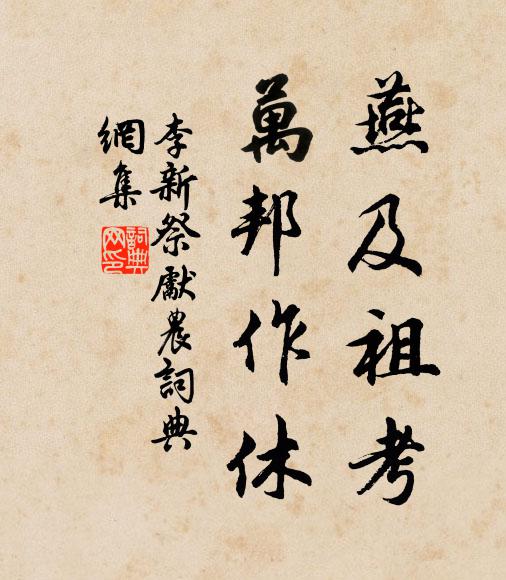 燕及祖考
萬邦作休
李新祭獻農詞典
網集
詞典
网印